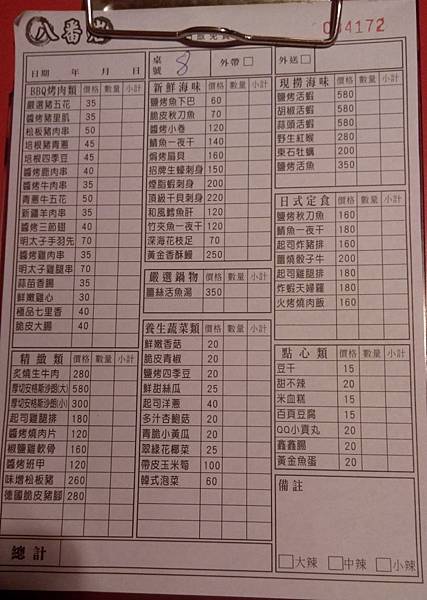 八番
034172
日期 年 月 日
桌號 8
外帶
外送
BBQ烤肉類 價格 數量 小計
嚴選豬五花 35
醬烤豬里肌 35
松板豬肉串 50
培根豬青蔥 45
培根四季豆 45
醬烤鹿肉串 40
醬烤牛肉串 35
青蔥牛五花 50
新疆羊肉串 35
醬烤三節翅 40
明太子手羽先 70
醬烤雞肉串 35
明太子雞腿串 70
蒜苗香腸 35
鮮嫩雞心 30
極品七里香 40
脆皮大腸 40
精緻類 價格 數量 小計
炙燒生牛肉 280
厚切安格斯沙朗(大) 580
厚切安格斯沙朗(小) 300
起司雞腿排 180
醬烤燒肉片 120
椒鹽雞軟骨 160
醬烤班甲 120
味增松板豬 260
德國脆皮豬腳 280
總計
新鮮海味 價格 數量 小計
鹽烤魚下巴 60
脆皮秋刀魚 70
醬烤小卷 120
鯖魚一夜干 140
焗烤扇貝 160
招牌生蠔刺身 150
煙脂蝦刺身 200
頂級干貝刺身 220
和風鱈魚肝 120
竹夾魚一夜干 120
深海花枝足 70
黃金香酥鰻 250
嚴選鍋物 價格 數量 小計
薑絲活魚湯 350
養生蔬菜類 價格 數量 小計
鮮嫩香菇 20
脆皮青椒 20
鹽烤四季豆 20
鮮甜絲瓜 25
起司洋蔥 40
多汁杏鮑菇 20
青脆小黃瓜 20
翠綠花椰菜 25
帶皮玉米筍 100
韓式泡菜 60
現撈海味 價格 數量 小計
鹽烤活蝦 580
胡椒活蝦 580
蒜頭活蝦 580
野生紅喉 280
東石牡蠣 200
鹽烤活魚 350
日式定食 價格 數量 小計
鹽烤秋刀魚 160
鯖魚一夜干 180
起司炸豬排 160
醬燒骰子牛 200
起司雞腿排 180
炸蝦天婦羅 180
火烤燒肉飯 160
點心類 價格 數量 小計
豆干 15
甜不辣 20
米血糕 15
百頁豆腐 15
QQ小貢丸 20
鑫鑫腸 20
黃金魚蛋 20
備註
大辣 中辣 小辣